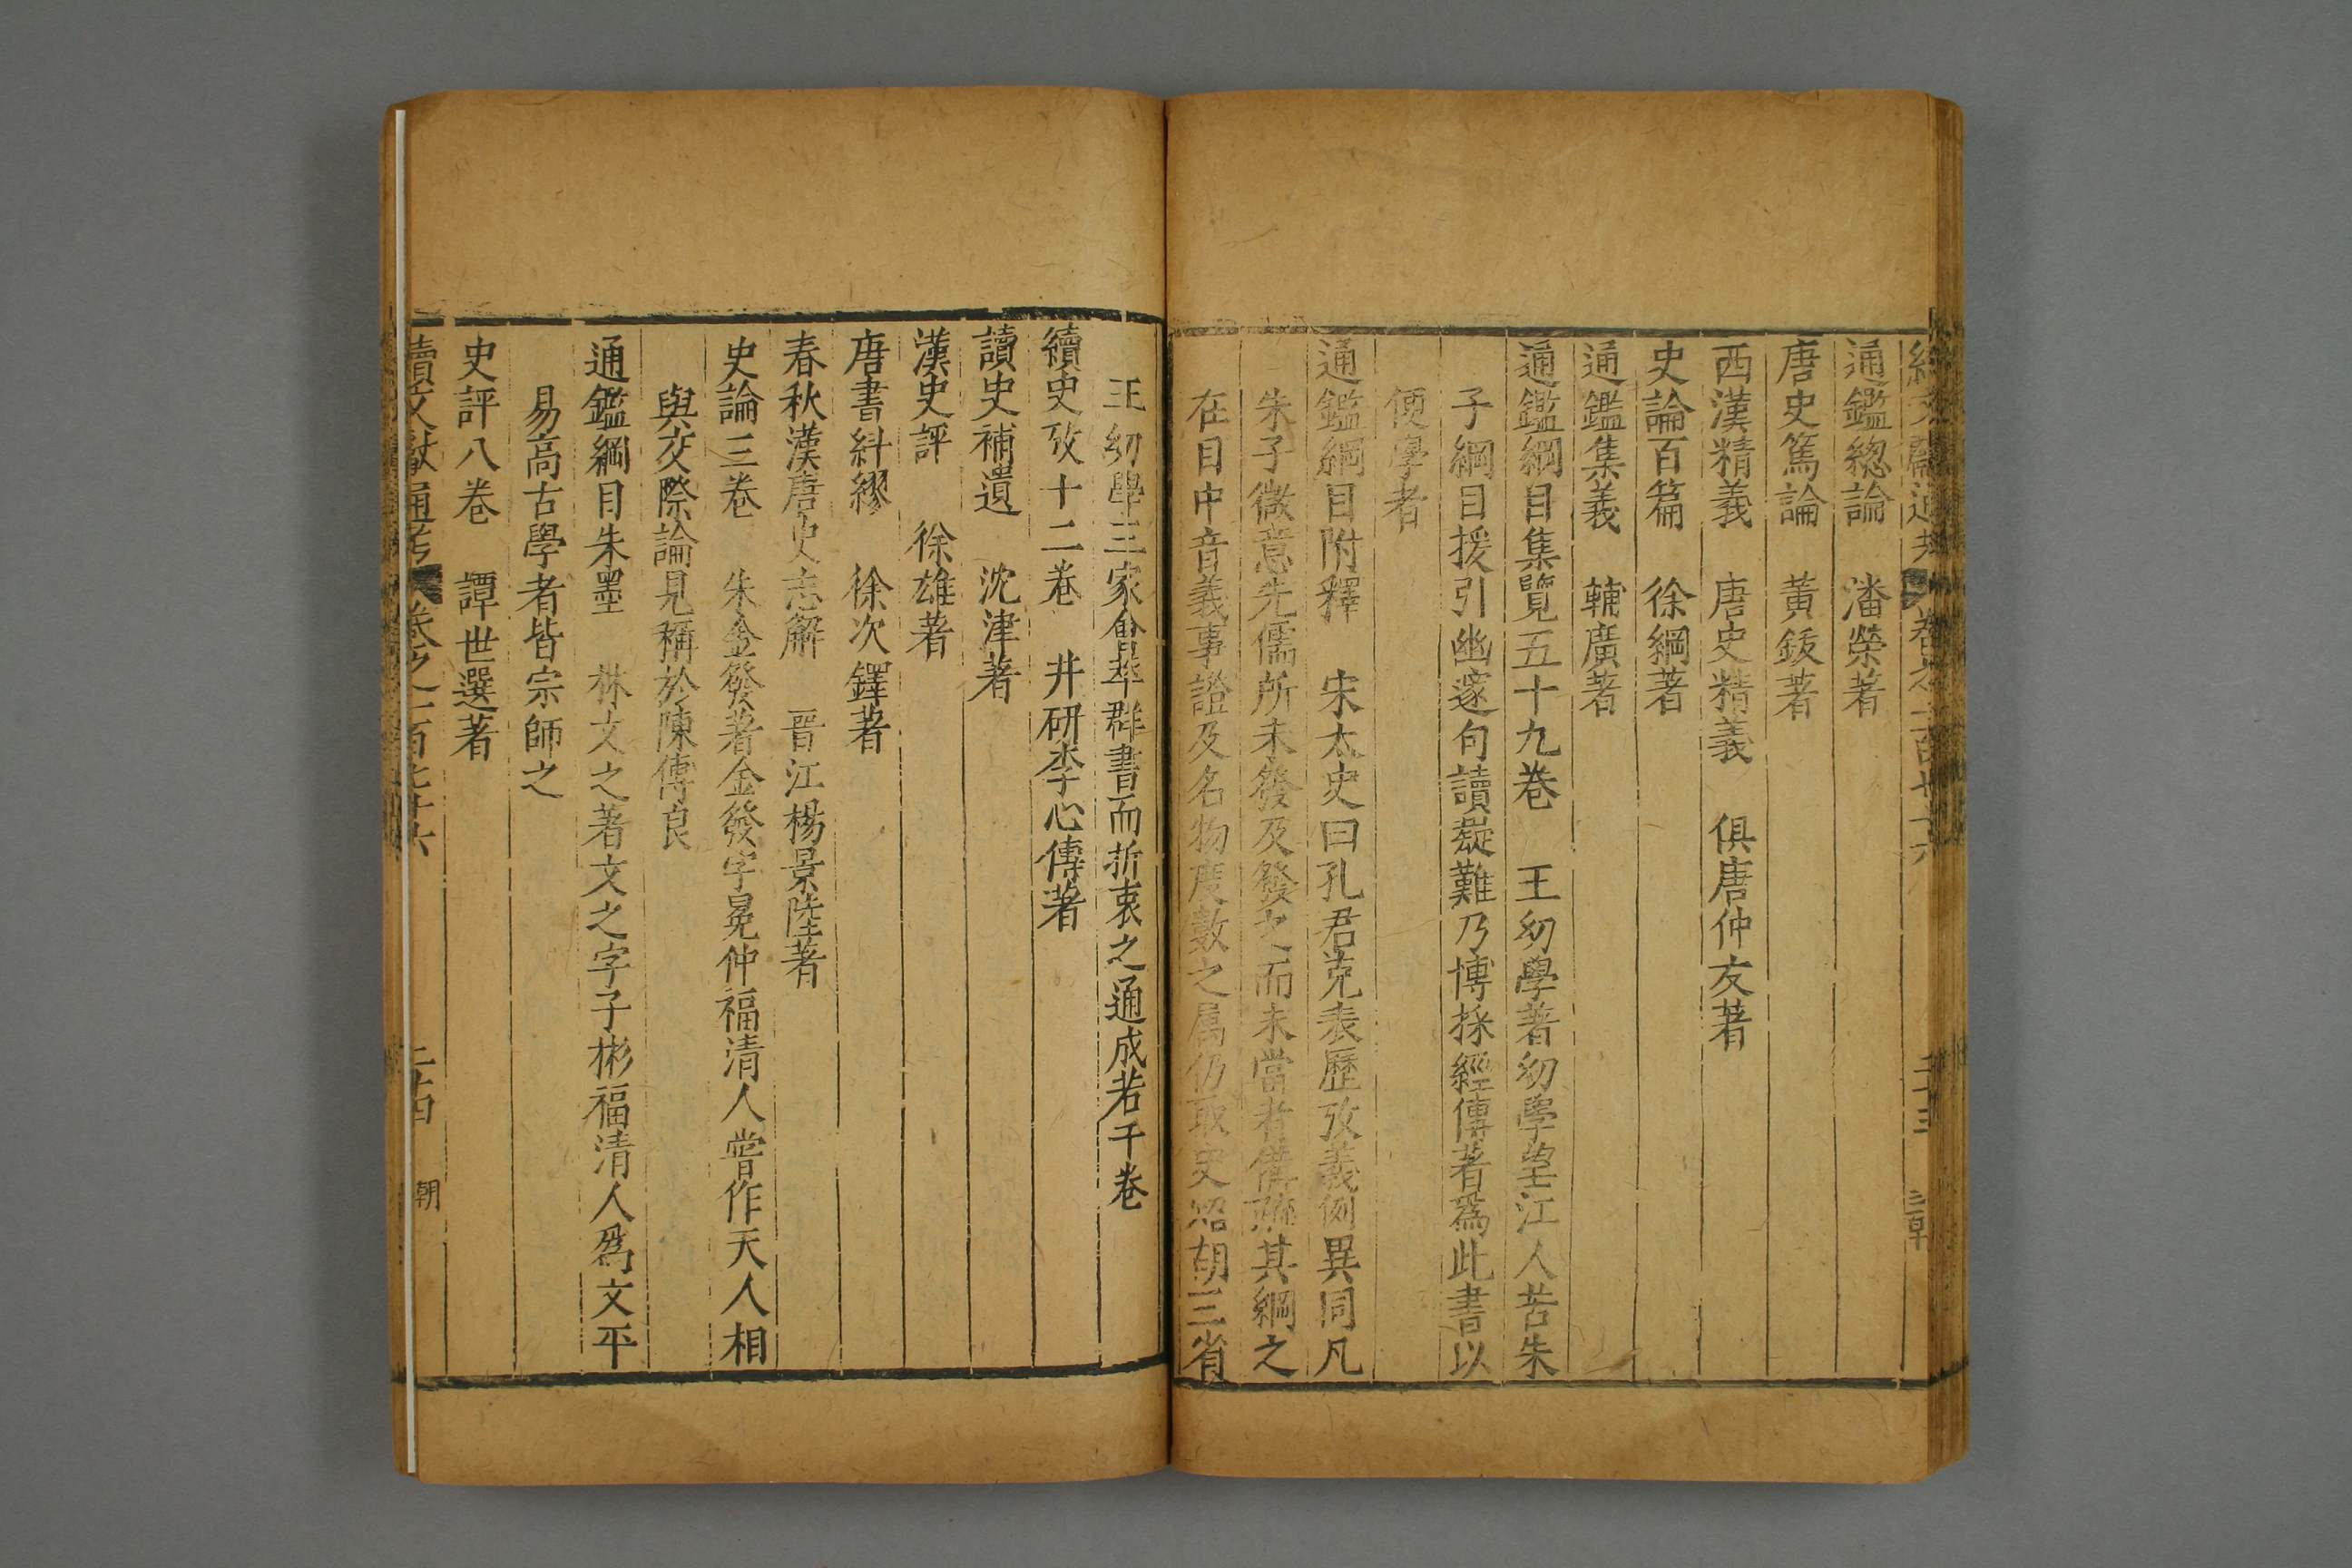 通鑑總論 潘榮著
唐史篤論 黃䤬著
西漢精義 唐史精義 俱唐仲友著
史論百篇 徐綱著
通鑑集義 輔廣著
通鑑綱目集覽五十九卷 王幼學著幼學望江人苦朱
子綱目援引幽邃句讀嶷難乃博採經傳著爲此書以
便學者
通鑑綱目附釋 宋太史曰孔君克表歷攷義例異同凡
朱子微意先儒所未發及發之而未當者備疏其綱之
在目中音義事證及名物度數之属仍取史炤胡三省
王幼學三家會萃群書而折衷之通成若干卷
續史攷十二卷 井研李心傳著
讀史補遺 沈津著
漢史評 徐雄著
唐書糾繆 徐次鐸著
春秋漢唐史志解 晉江楊景陸著
史論三卷 朱金發著金發字晃仲福清人嘗作天人相
與交際論見稱於陳傅良
通鑑綱目朱墨 林文之著文之字子彬福清人爲文平
易高古學者皆宗師之
史評八卷 譚世選著
續文獻通考 卷之一百七十六 二十四 朝